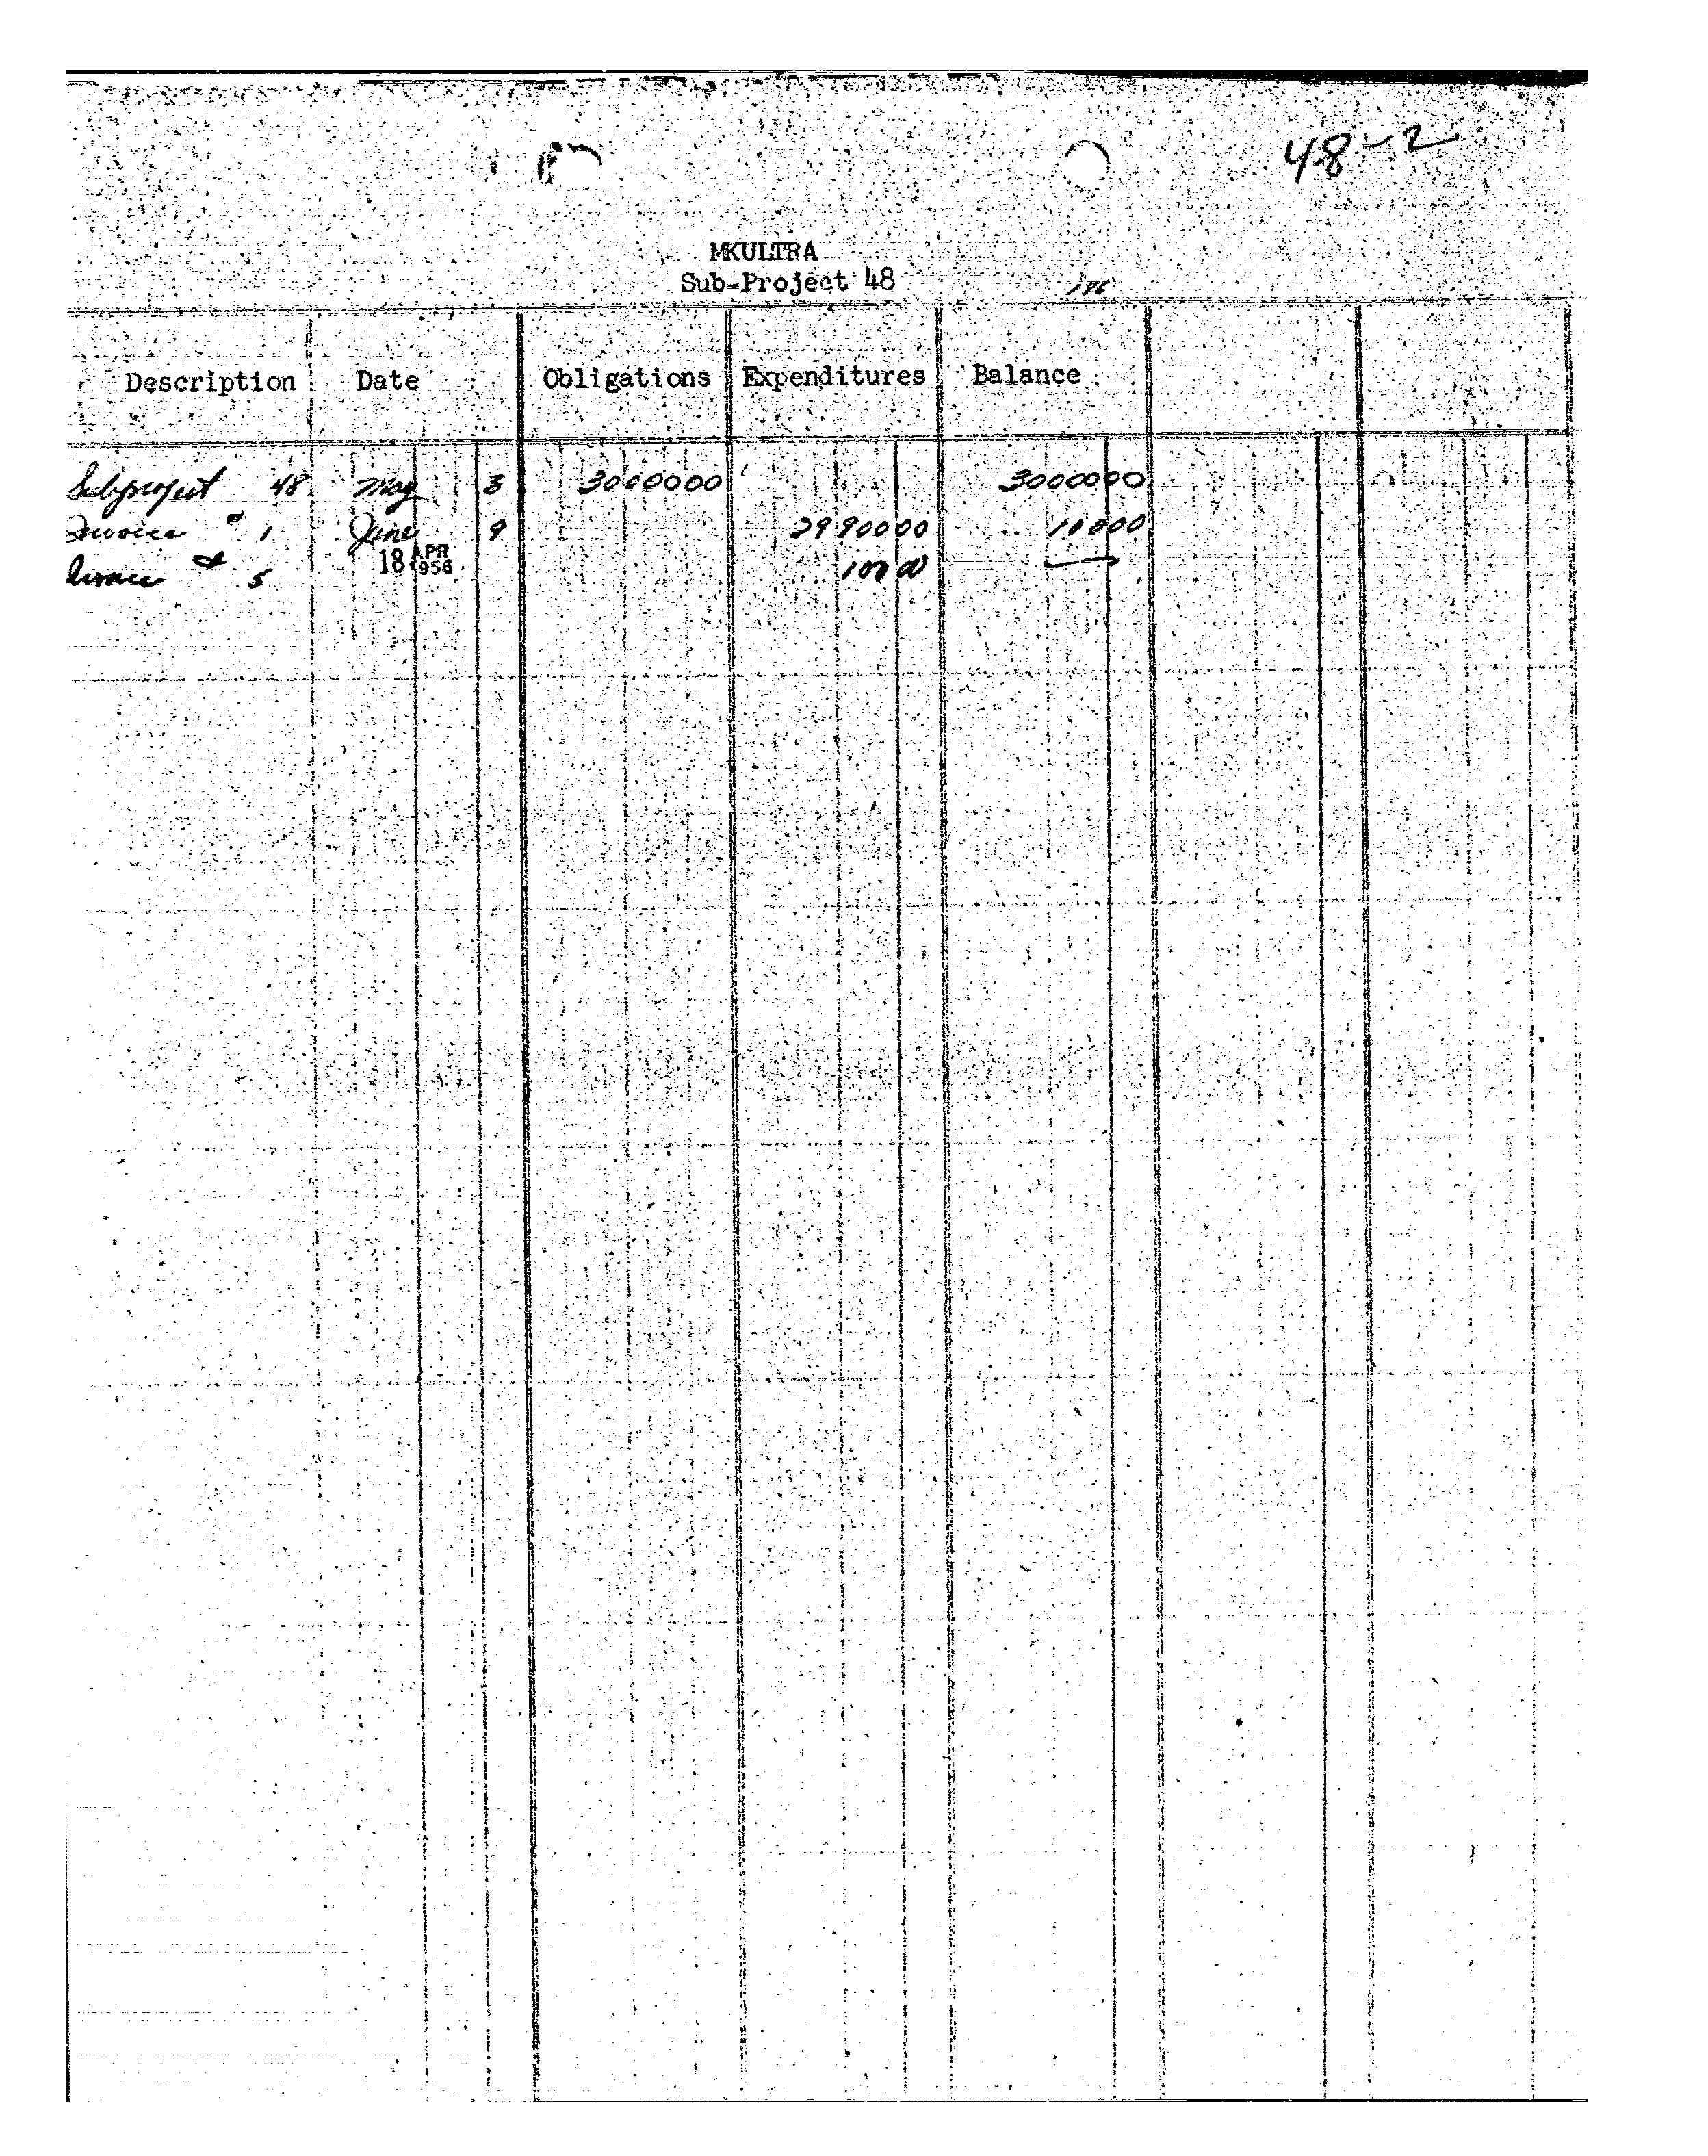 48-2
MKULTRA
Sub-Project 48
Description Date Obligations Expenditures Balance
Subproject 48 May 3 3000000 3000000
Invoice # 1 June 9 2990000 10000
Invoice # 5 18 APR 1956 100 00 —